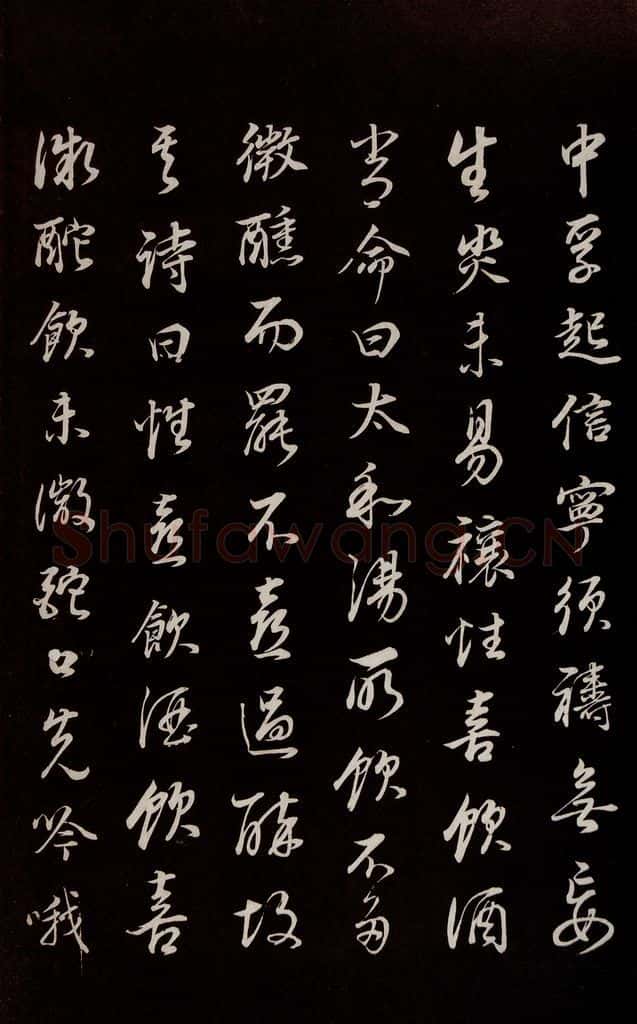 中孚起信寧須禱無妄
生災未易禳性喜飲酒
嘗命曰太和湯所飲不多
微醺而罷不喜過醉故
其詩曰性喜飲酒飲喜
微酡飲未微酡口先吟哦
Shufawang.CN